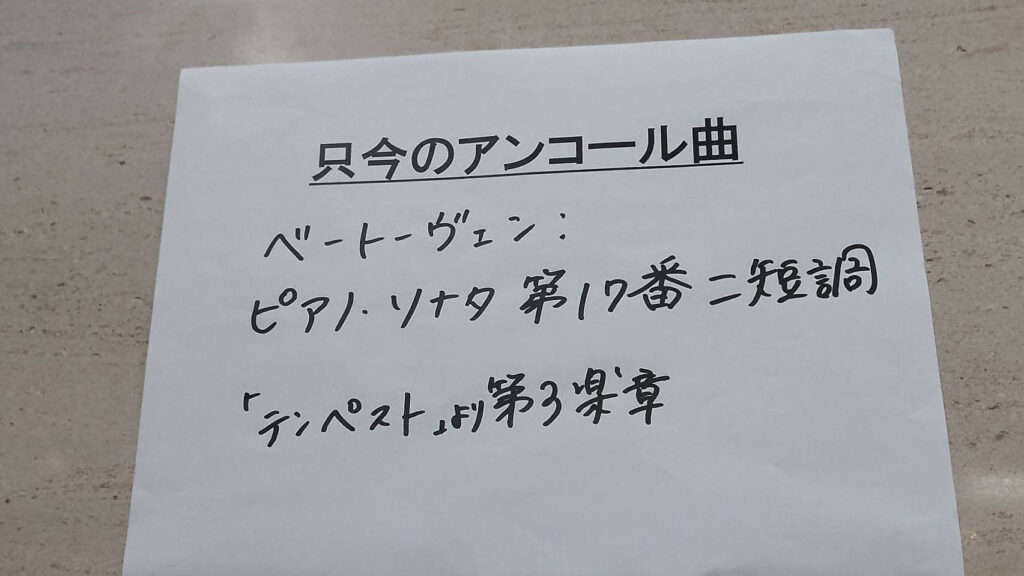 只今のアンコール曲
ベートーヴェン:
ピアノ・ソナタ 第17番 ニ短調
「テンペスト」より第3楽章